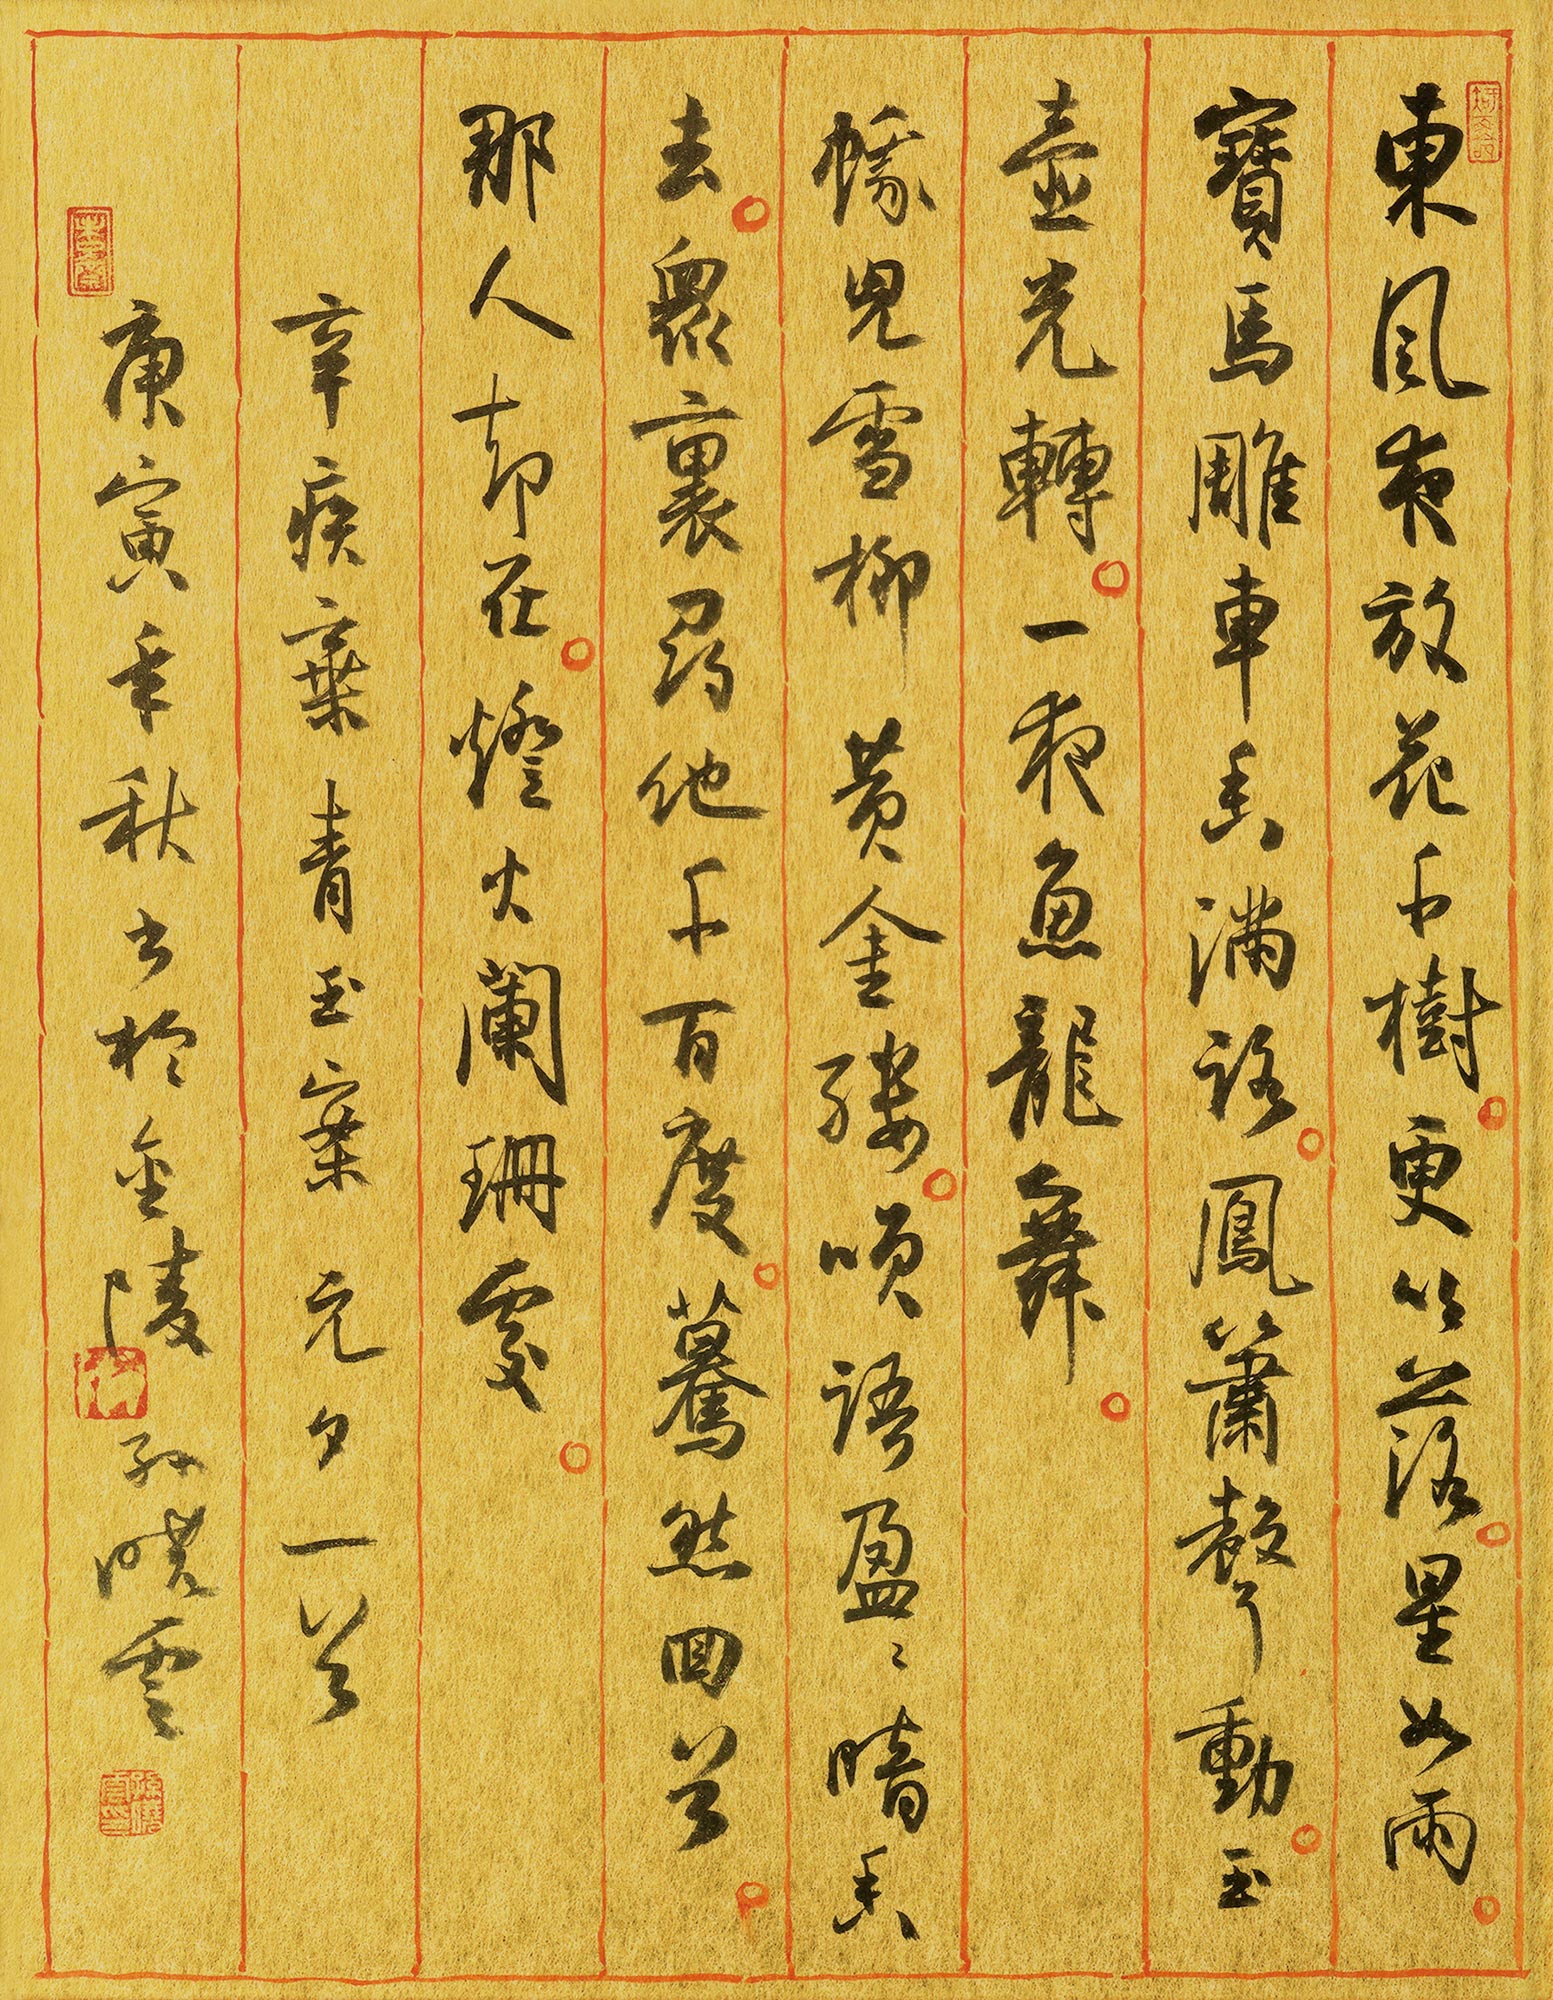 東風夜放花千樹。更吹落。星如雨。
寶馬雕車香滿路。鳳簫聲動。玉
壺光轉。一夜魚龍舞。
蛾兒雪柳黃金縷。咲語盈〻暗香
去。眾裏尋他千百度。驀然回首。
那人却在。燈火闌珊處。
辛疾棄青玉案元夕一首
庚寅年秋書於金陵孫曉雲